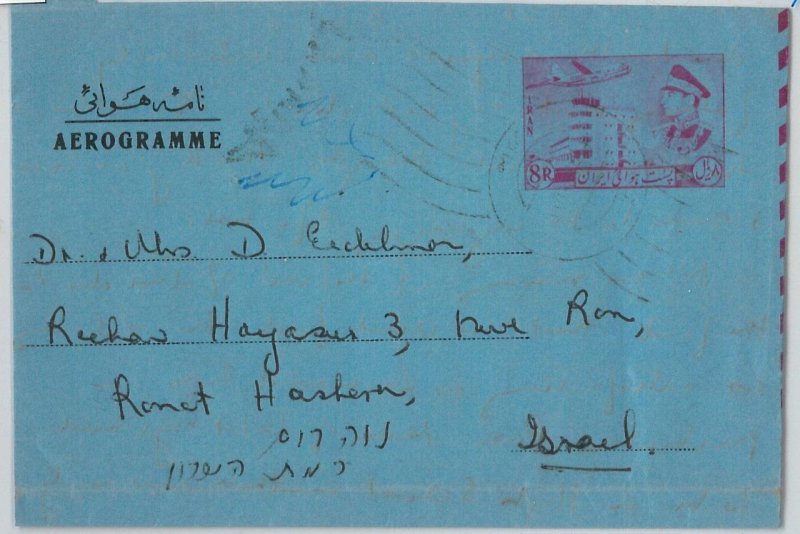 نامه هوائی
AEROGRAMME
IRAN
8R پست هوائی ایران ۸ ریال
Dr. & Mrs. D
Rechov Hayasur 3, Neve Ron,
Ramat Hasharon,
נוה רום
רמת השרון
Israel.